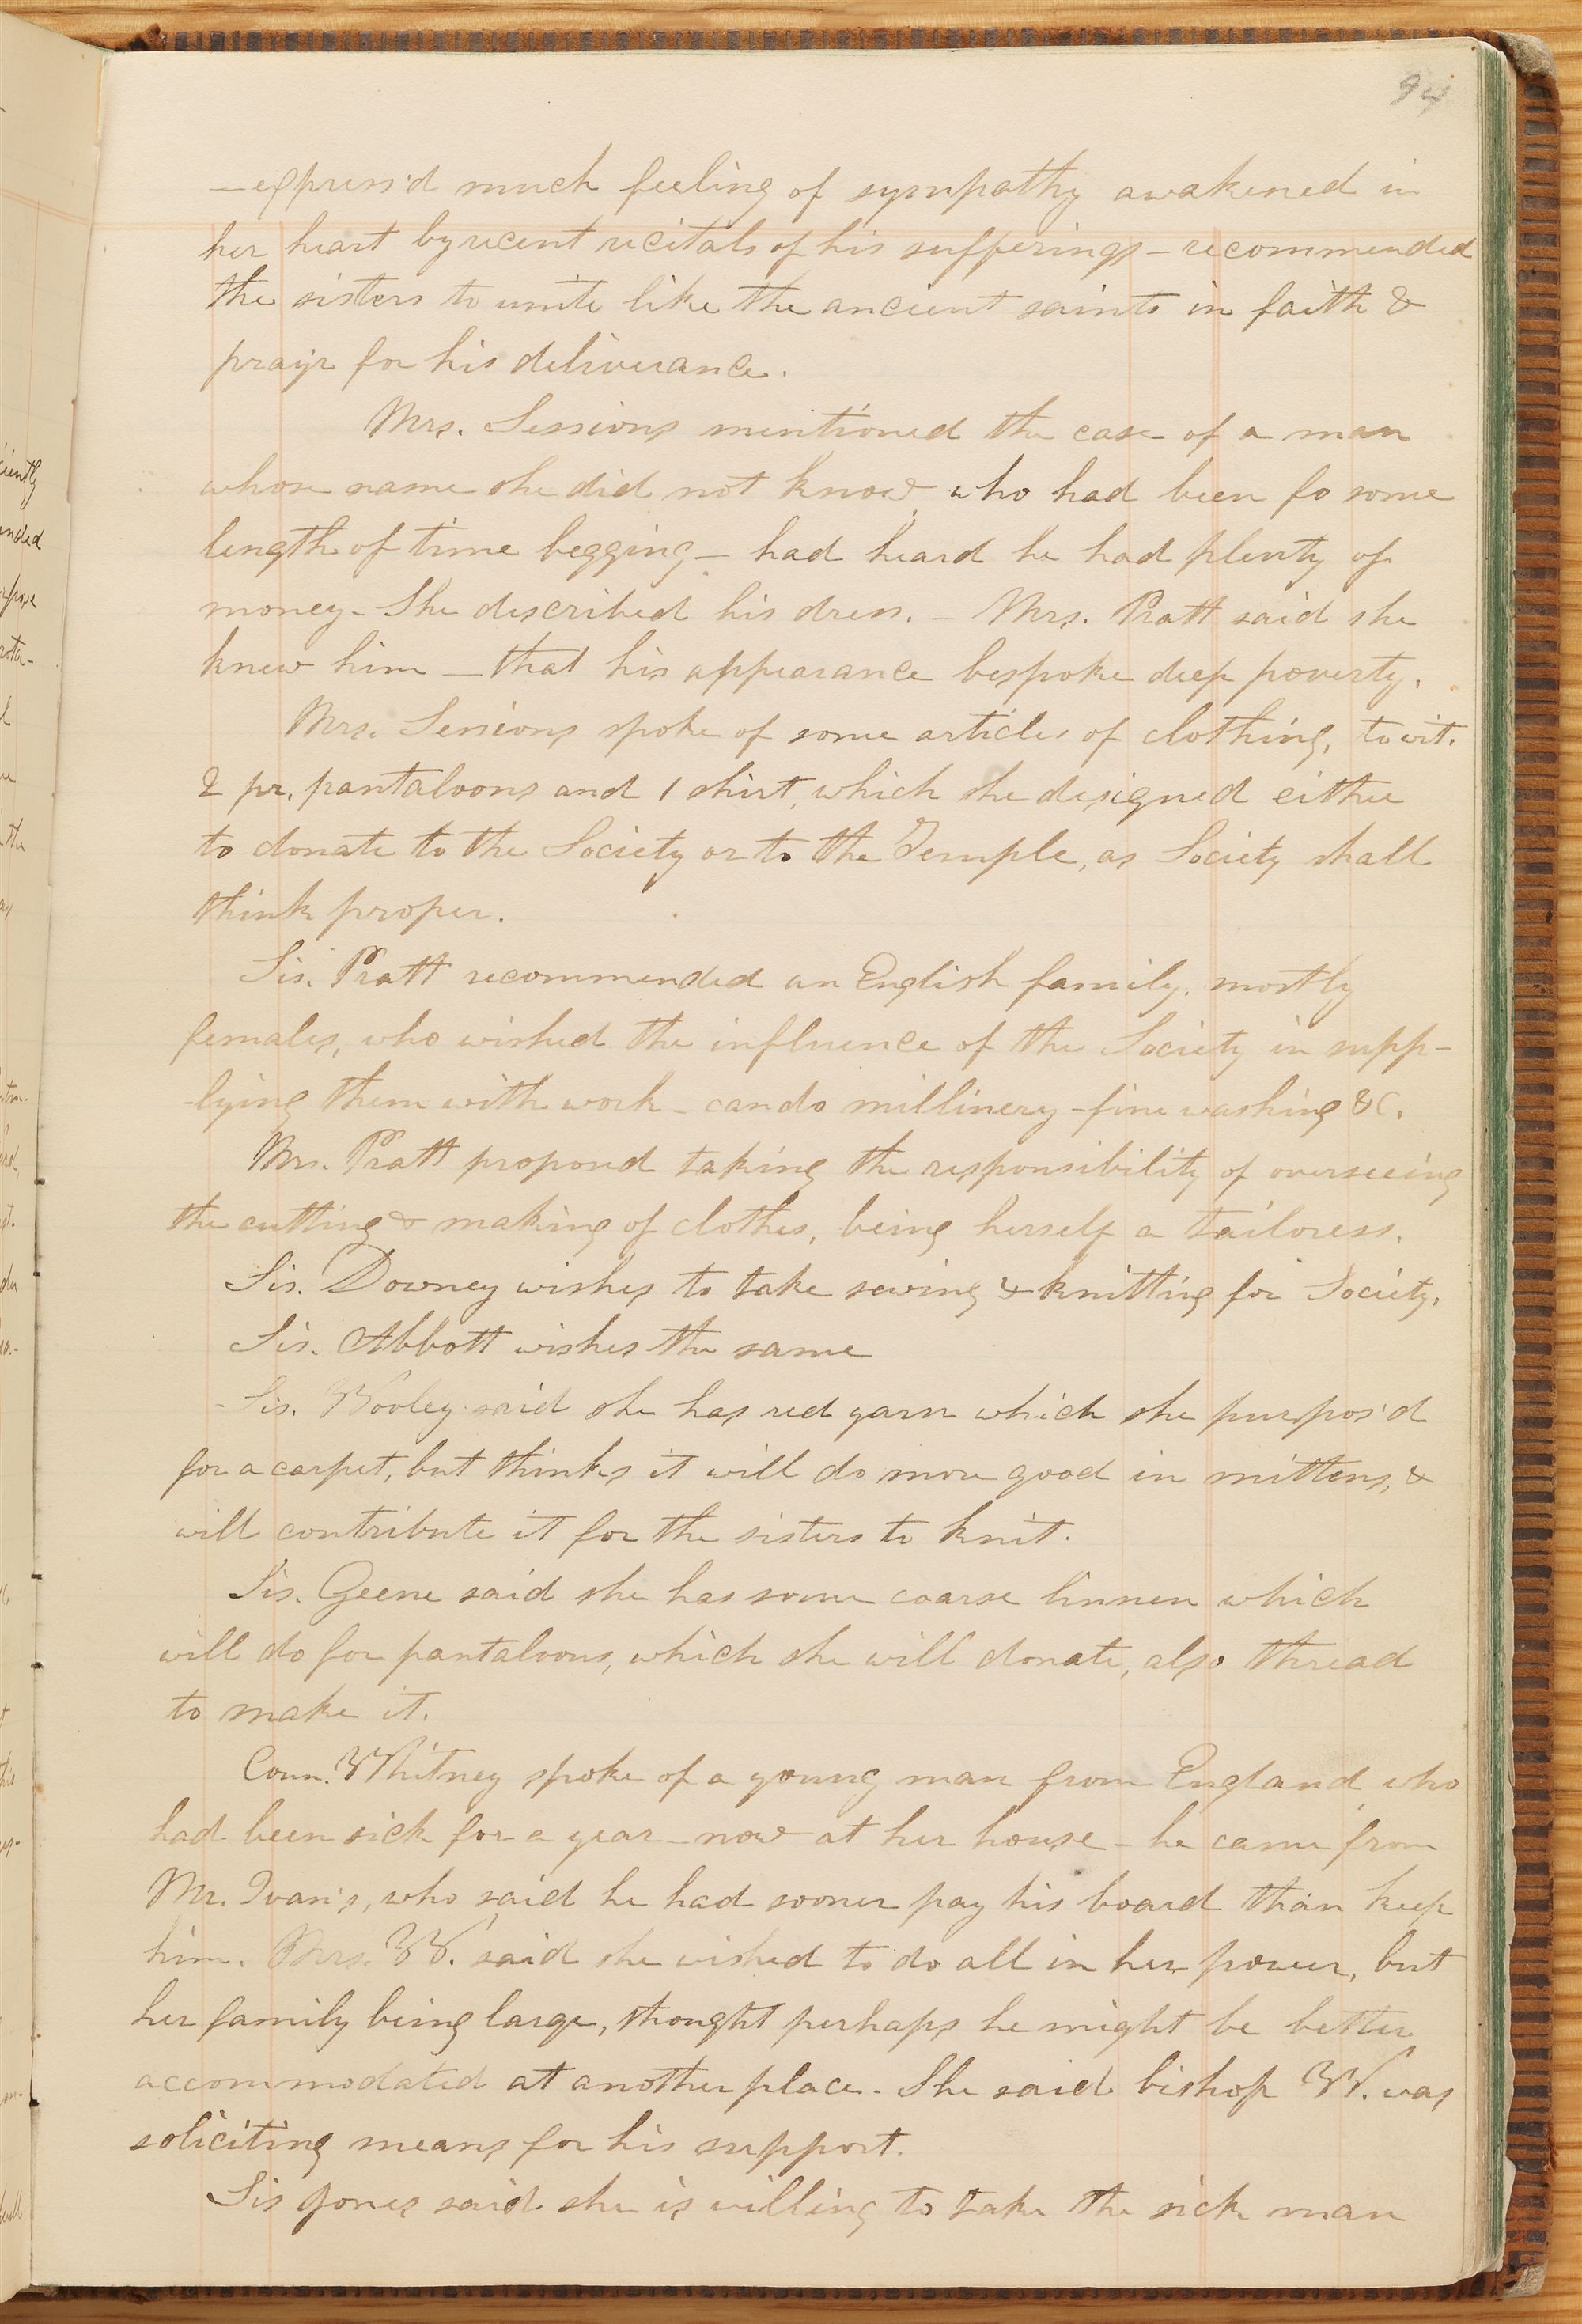 94
— express'd much feeling of sympathy awakened in
her heart by recent recitals of his sufferings — recommended
the sisters to unite like the ancient saints in faith &
pray'r for his deliverance.
Mrs. Sessions mentioned the case of a man
whose name she did not know, who had been fo some
length of time begging — had heard he had plenty of
money — She described his dress. — Mrs. Pratt said she
knew him — that his appearance bespoke deep poverty.
Mrs. Sessions spoke of some articles of clothing, to wit.
2 pr. pantaloons and 1 shirt, which she designed either
to donate to the Society or to the Temple, as Society shall
think proper.
Sis. Pratt recommended an English family, mostly
females, who wished the influence of the Society in supp-
-lying them with work — can do millinery — fine washing &c.
Mrs. Pratt proposed taking the responsibility of overseeing
the cutting & making of clothes, being herself a tailoress.
Sis. Downey wishes to take sewing & knitting for Society.
Sis. Abbott wishes the same
Sis. Wooley said she has red yarn which she purpos'd
for a carpet, but thinks it will do more good in mittens, &
will contribute it for the sisters to knit.
Sis. Geene said she has some coarse linnen which
will do for pantaloons, which she will donate, also thread
to make it.
Coun. Whitney spoke of a young man from England, who
had been sick for a year — now at her house — he came from
Mr. Ivan's, who said he had sooner pay his board than keep
him. Mrs. W. said she wished to do all in her power, but
her family being large, thought perhaps he might be better
accommodated at another place. She said bishop W. was
soliciting means for his support.
Sis Jones said she is willing to take the sick man